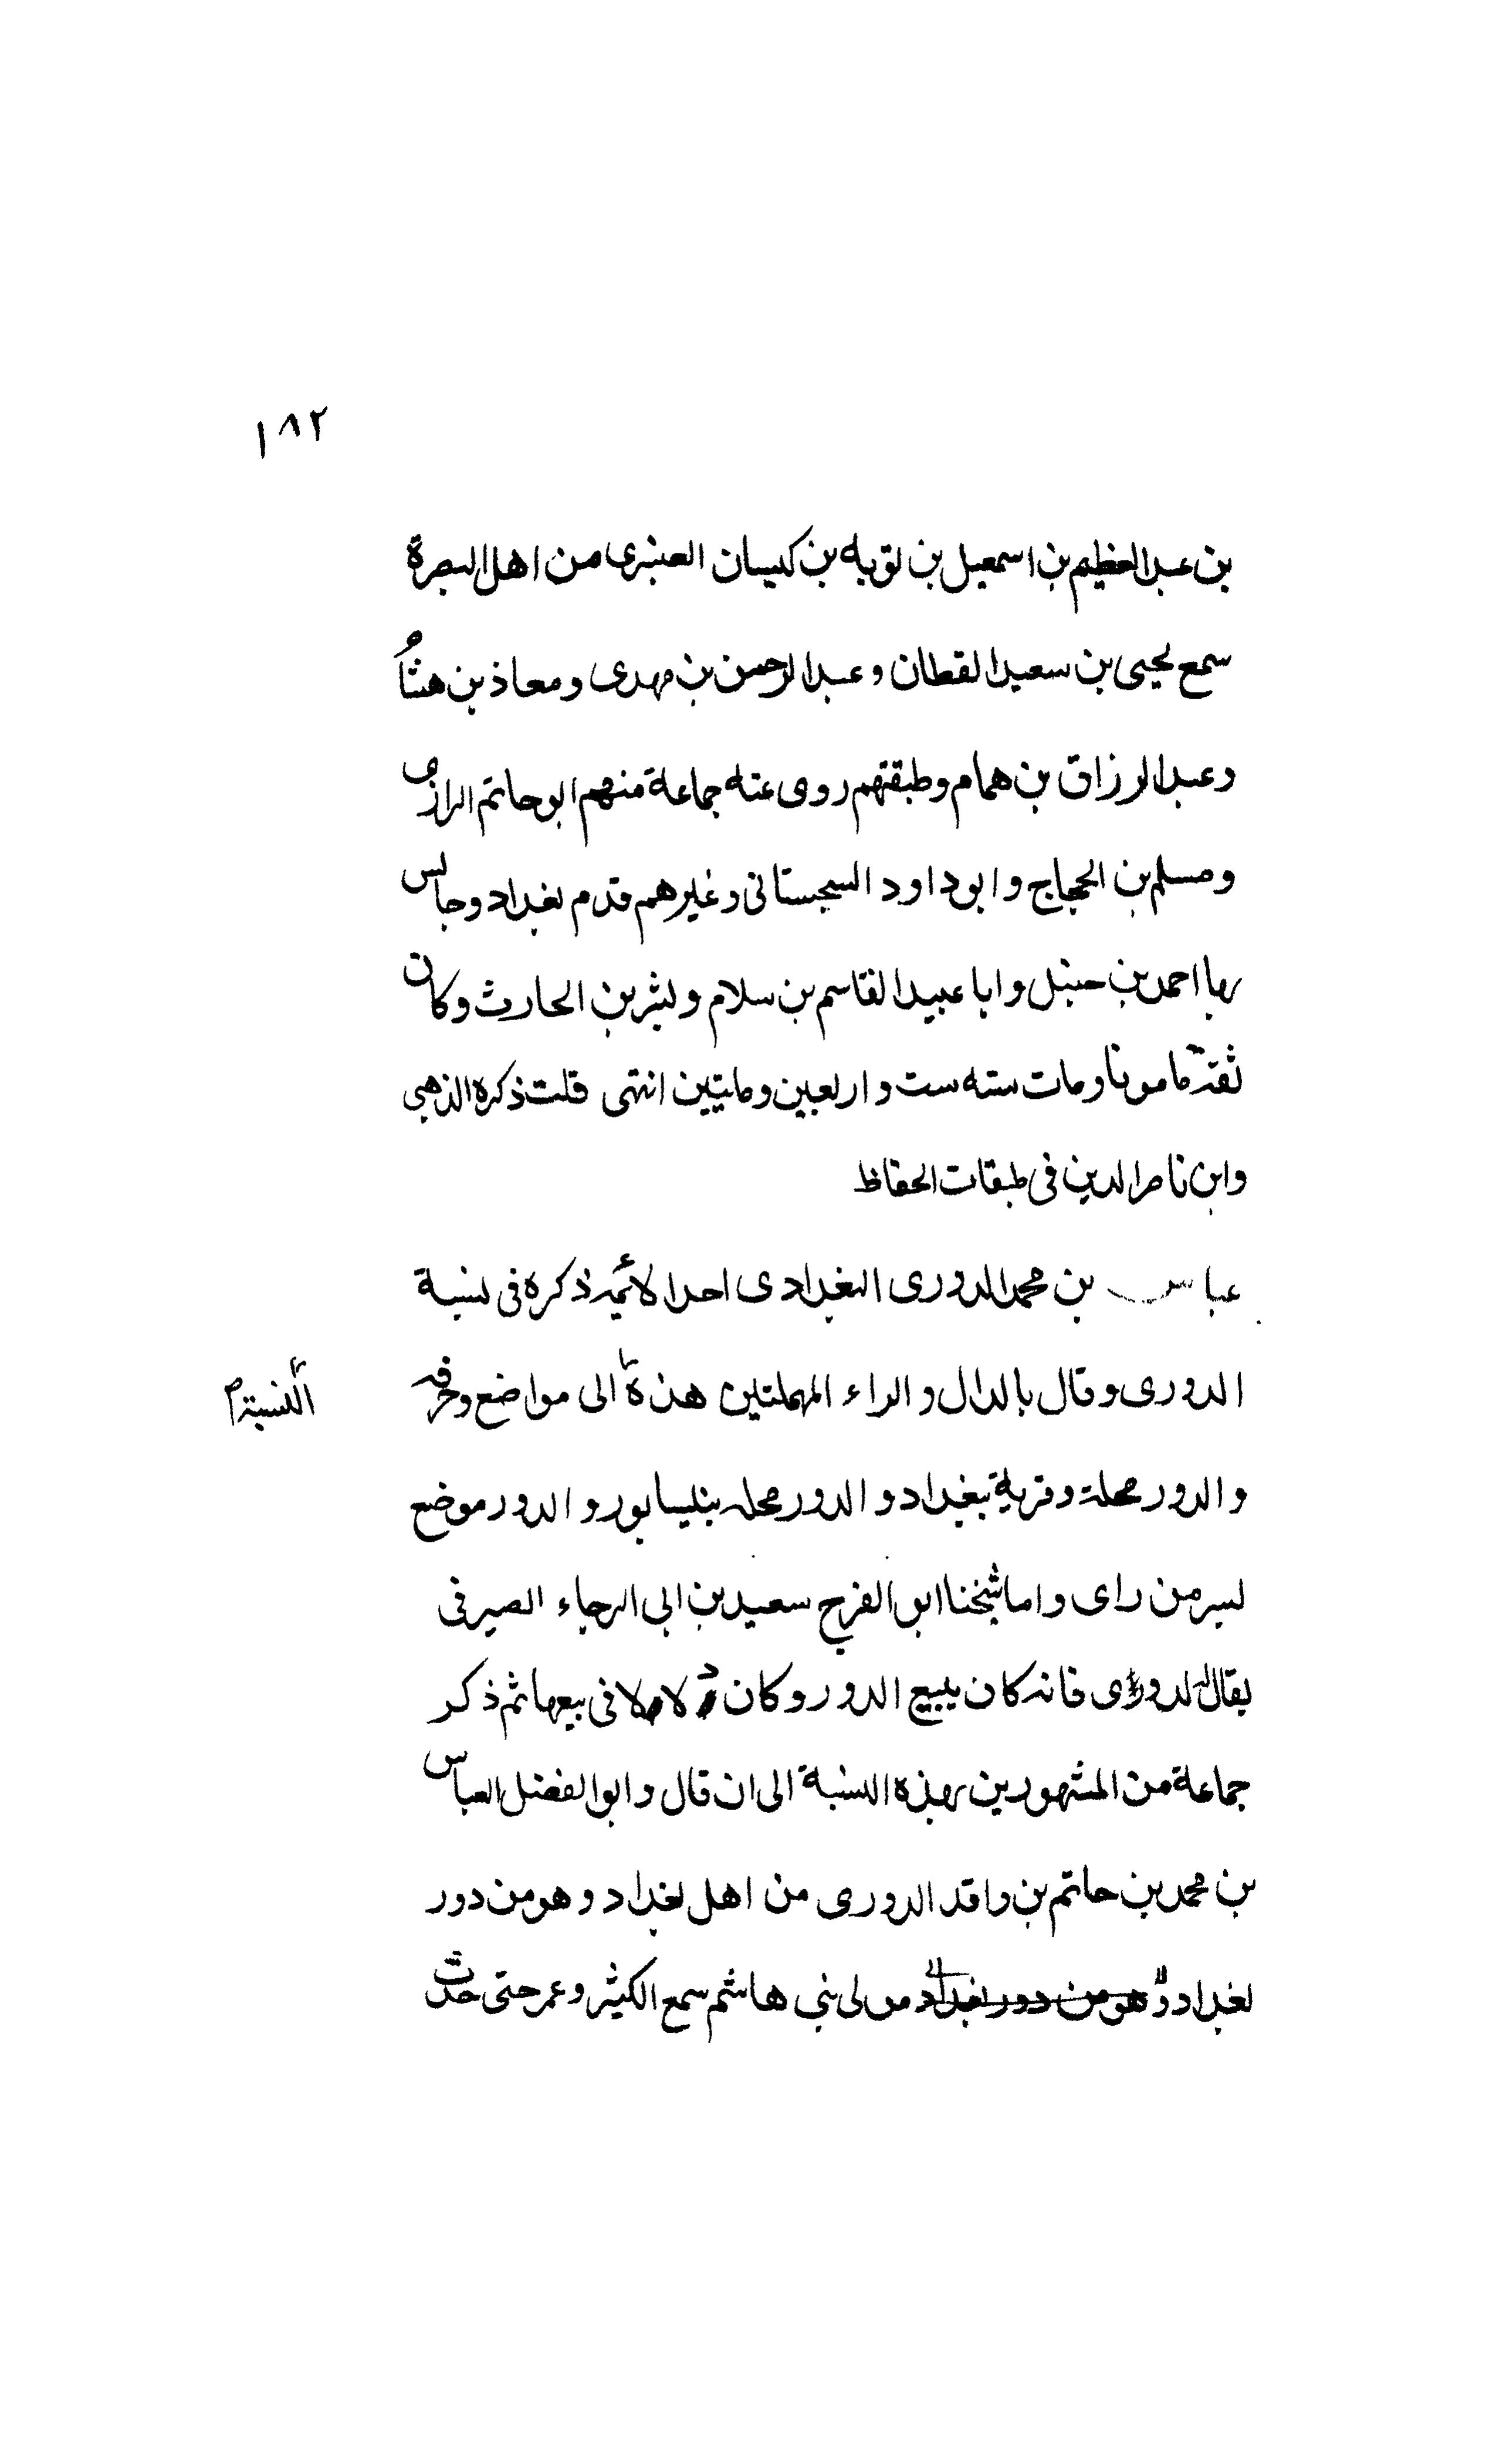 ١٨٢
بن عبد العظيم بن اسمعيل بن توبه بن كيسان العنبرى من اهل البصرة
سمع يحيى بن سعيد القطان و عبد الرحمن بن مهدى و معاذ بن هشام
وعبد الرزاق بن همام وطبقتهم روى عنه جماعة منهم ابو حاتم الرازى
ومسلم بن الحجاج و ابو داود السجستانى وغيرهم قدم بغداد وجالس
بها احمد بن حنبل و ابا عبيد القاسم بن سلام و بشر بن الحارث و كان
ثقة مامونا ومات سنه ست و اربعين ومايتين انتهى قلت ذكره الذهبى
وابن ناصر الدين فى طبقات الحفاظ
عباس بن محمد الدورى البغدادى احد الائمه ذكره فى نسبة
الدورى وقال بالدال و الراء المهملتين هذه الى مواضع وحرفه
النسبة
و الدور محلة وقرية ببغداد و الدور محله بنيسابور و الدور موضع
بسر من راى و اما شيخنا ابو الفرج سعيد بن ابى الرجاء الصيرفى
يقال له الدورى فانه كان يبيع الدور وكان دلالا فى بيعها ثم ذكر
جماعة من المشهورين بهذه النسبة الى ان قال و ابو الفضل العباس
بن محمد بن حاتم بن واقد الدورى من اهل بغداد و هو من دور
بغداد و هو من دور بغداد مولى بنى هاشم سمع الكثير و عمر حتى حدث